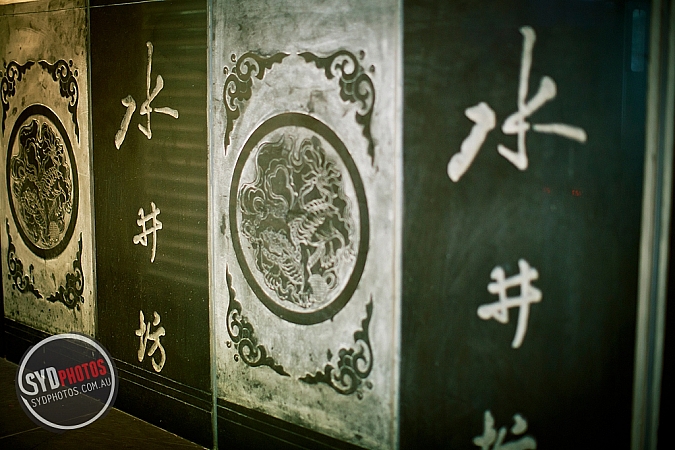 水井坊
水井坊
SYDPHOTOS
SYDPHOTOS.COM.AU